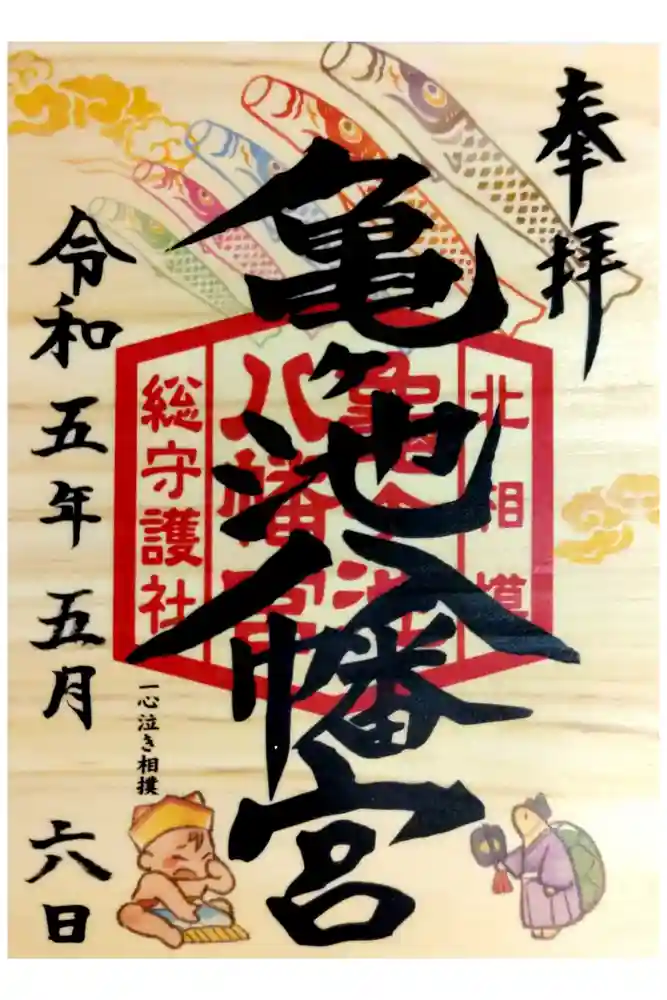 奉拝
亀ヶ池八幡宮
北相模
亀ヶ池
八幡宮
総守護社
令和五年五月六日
一心泣き相撲